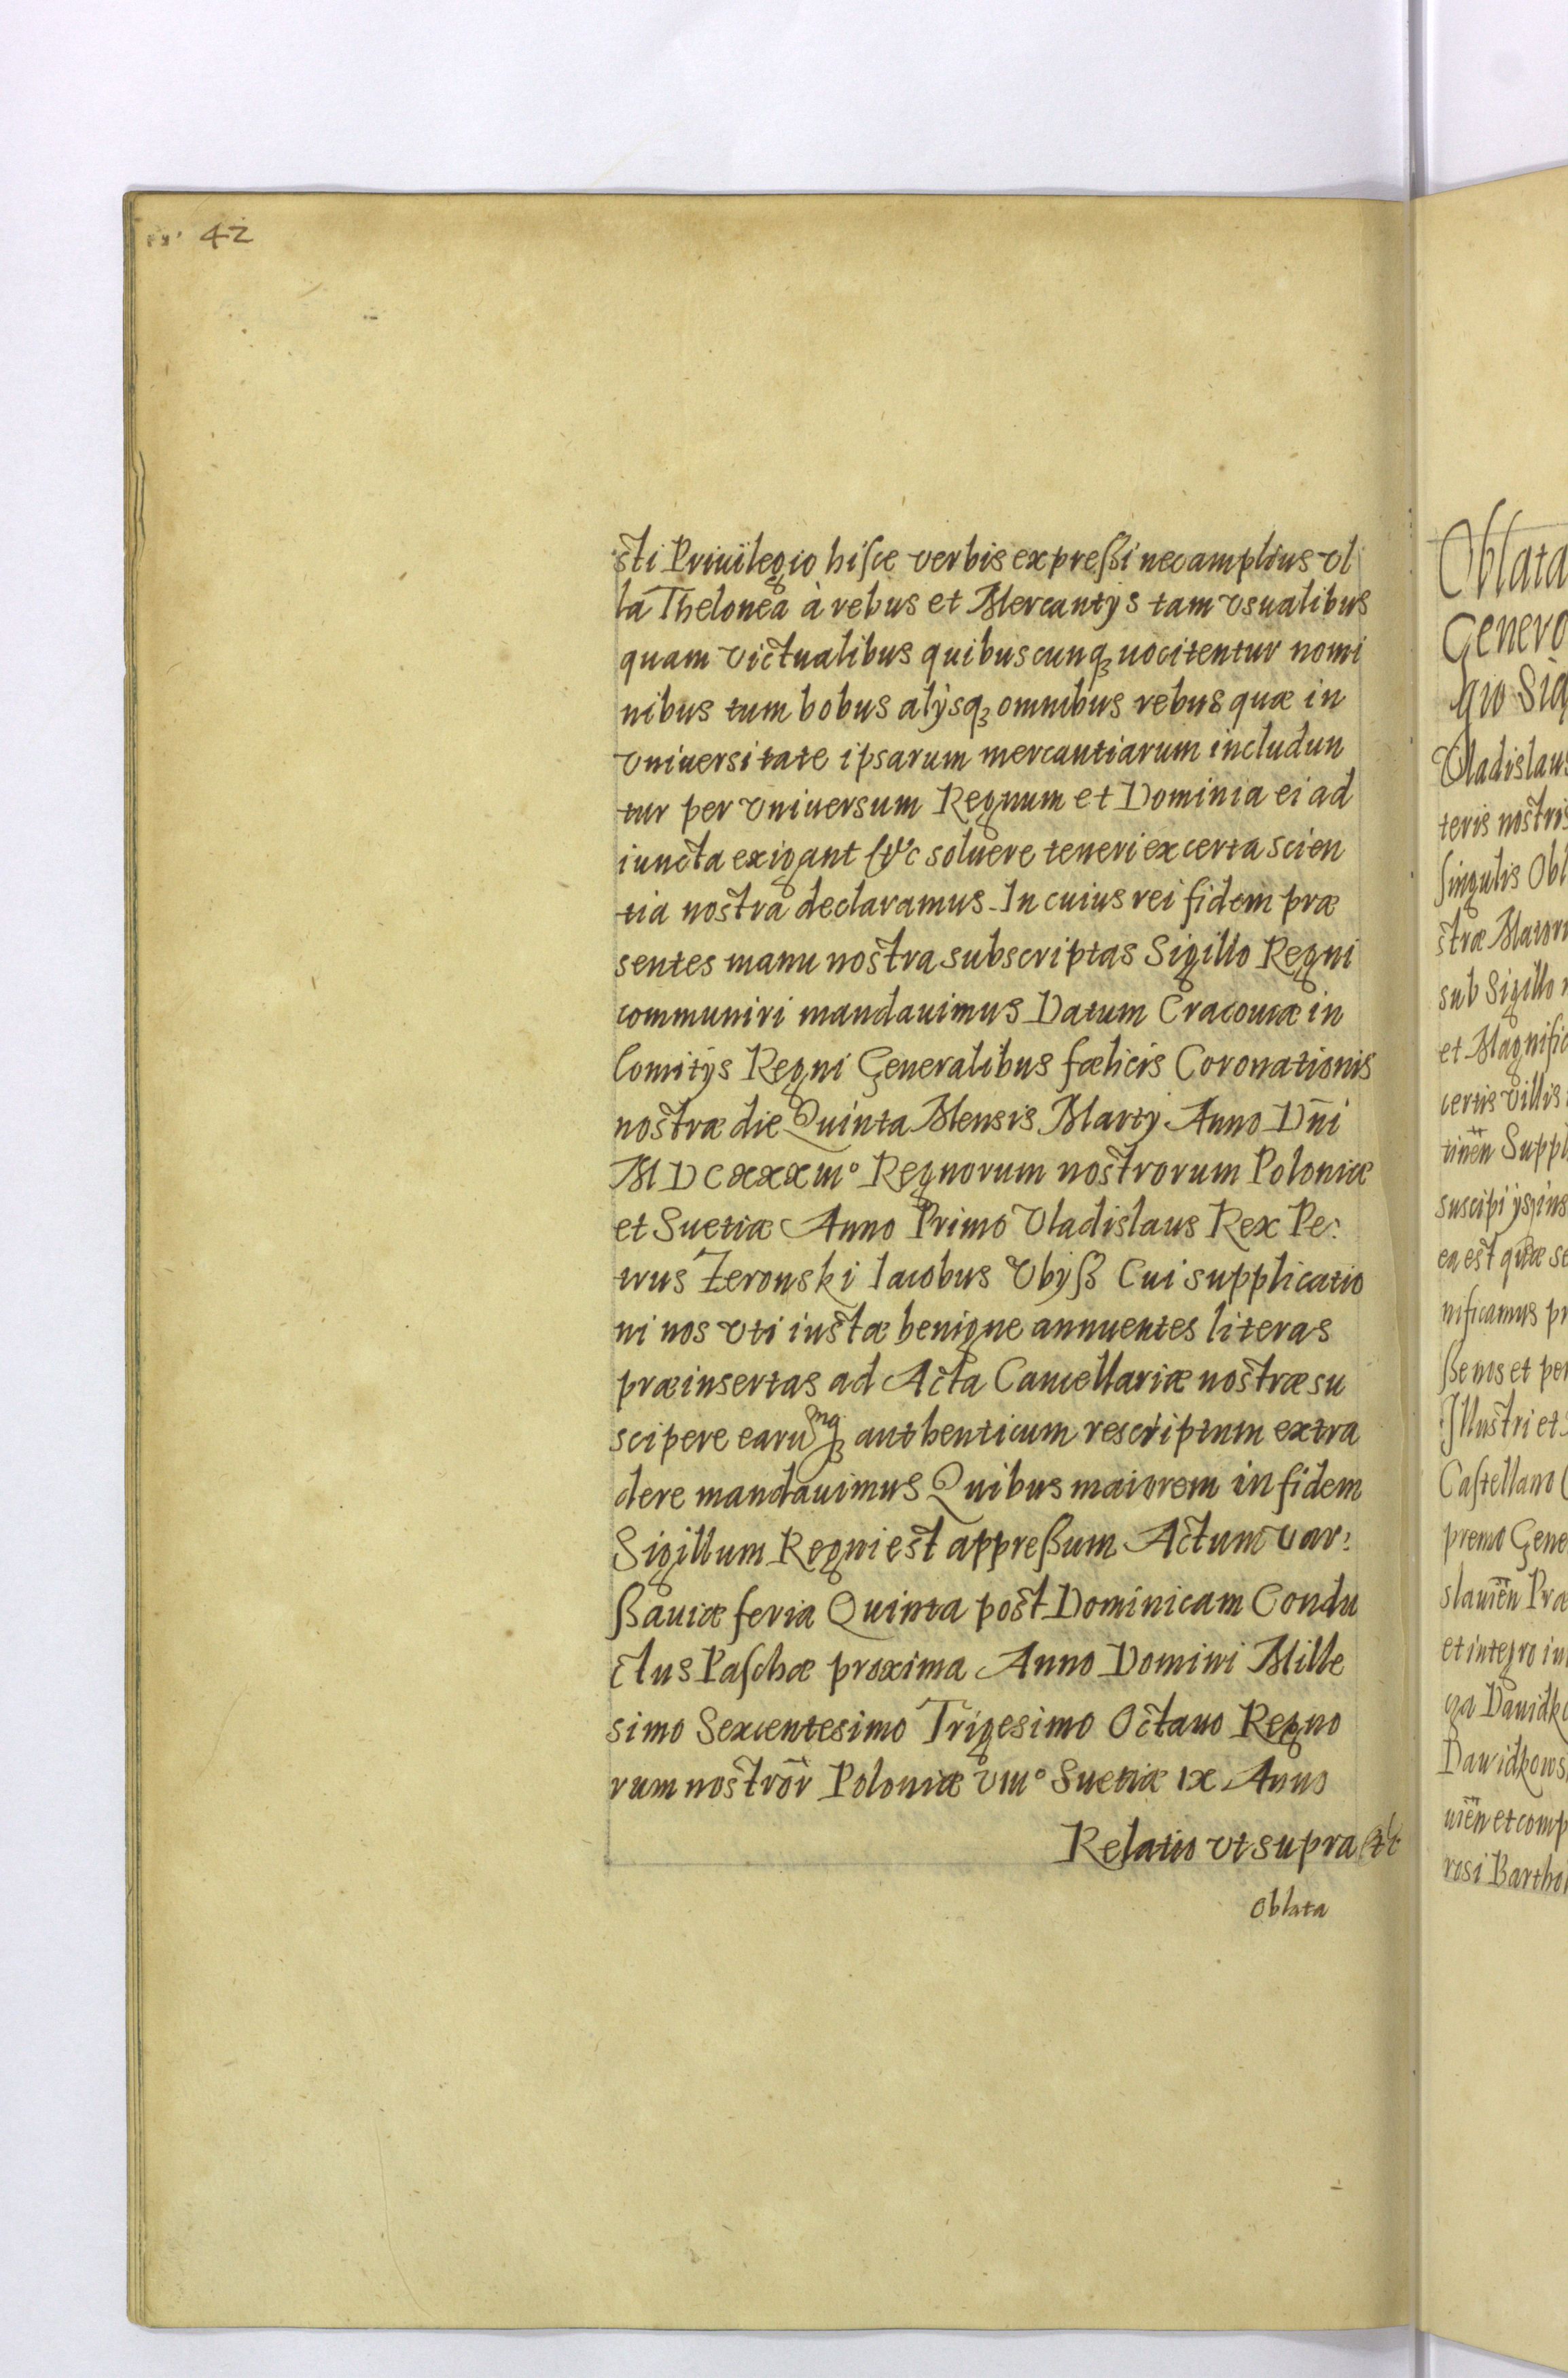 42
sti Priuilegio hisce verbis expreßi nec amplius vl
la Thelonea à rebus et Mercantijs tam vsualibus
quam victualibus quibuscunqꝫ uocitentur nomi
nibus tum bobus alijsqꝫ omnibus rebus quæ in
vniuersitate ipsarum mercantiarum includun
tur per vniuersum Regnum et Dominia ei ad
iuncta exigant soluere teneri ex certa scien
tia nostra declaramus. In cuius rei fidem præ
sentes manu nostra subscriptas Sigillo Regni
communiri mandauimus Datum Cracouiæ in
Comitijs Regni Generalibus fælicis Coronationis
nostræ die Quinta Mensis Martij Anno Dn̄i
MDCXXXIIIº Regnorum nostrorum Poloniæ
et Suetiæ Anno Primo Vladislaus Rex Pe:
trus Zeronski Iacobus Vbyß Cui supplicatio
ni nos vti iustæ benigne annuentes literas
præinsertas ad Acta Cancellariæ nostræ su
scipere earumqꝫ authenticum rescriptum extra
dere mandauimus Quibus maiorem in fidem
Sigillum Regni est appreßum Actum Var:
ßauiæ feria Quinta post Dominicam Condu
ctus Paschæ proxima Anno Domini Mille
simo Sexcentesimo Trigesimo Octauo Regno
rum nostror̄ Poloniæ VIº Suetiæ IX Anno
Relatio vt supra etc
Oblata
Oblata
Genero
gio Sig
Vladislaus
teris nostris
singulis Obl
stræ Maiori
sub Sigillo n
et Magnific
certis villis
tinen̄ Suppl
suscipi ijs
ea est quæ se
nificamus pr
ßens et per
Illustri et
Castellano
premo Gene
slauien̄ Præ
et integro in
ga Dauidko
Dawidkows
uien̄ et comp
rosi Barthol